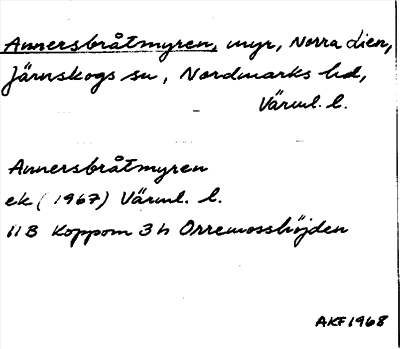 Annersbråtmyren, myr, Norra Lien,
Järnskogs sn, Nordmarks hd,
Värml. l.
Annersbråtmyren
ek (1967) Värml. l.
11B Koppom 3h Orremosshöjden
AKF 1968